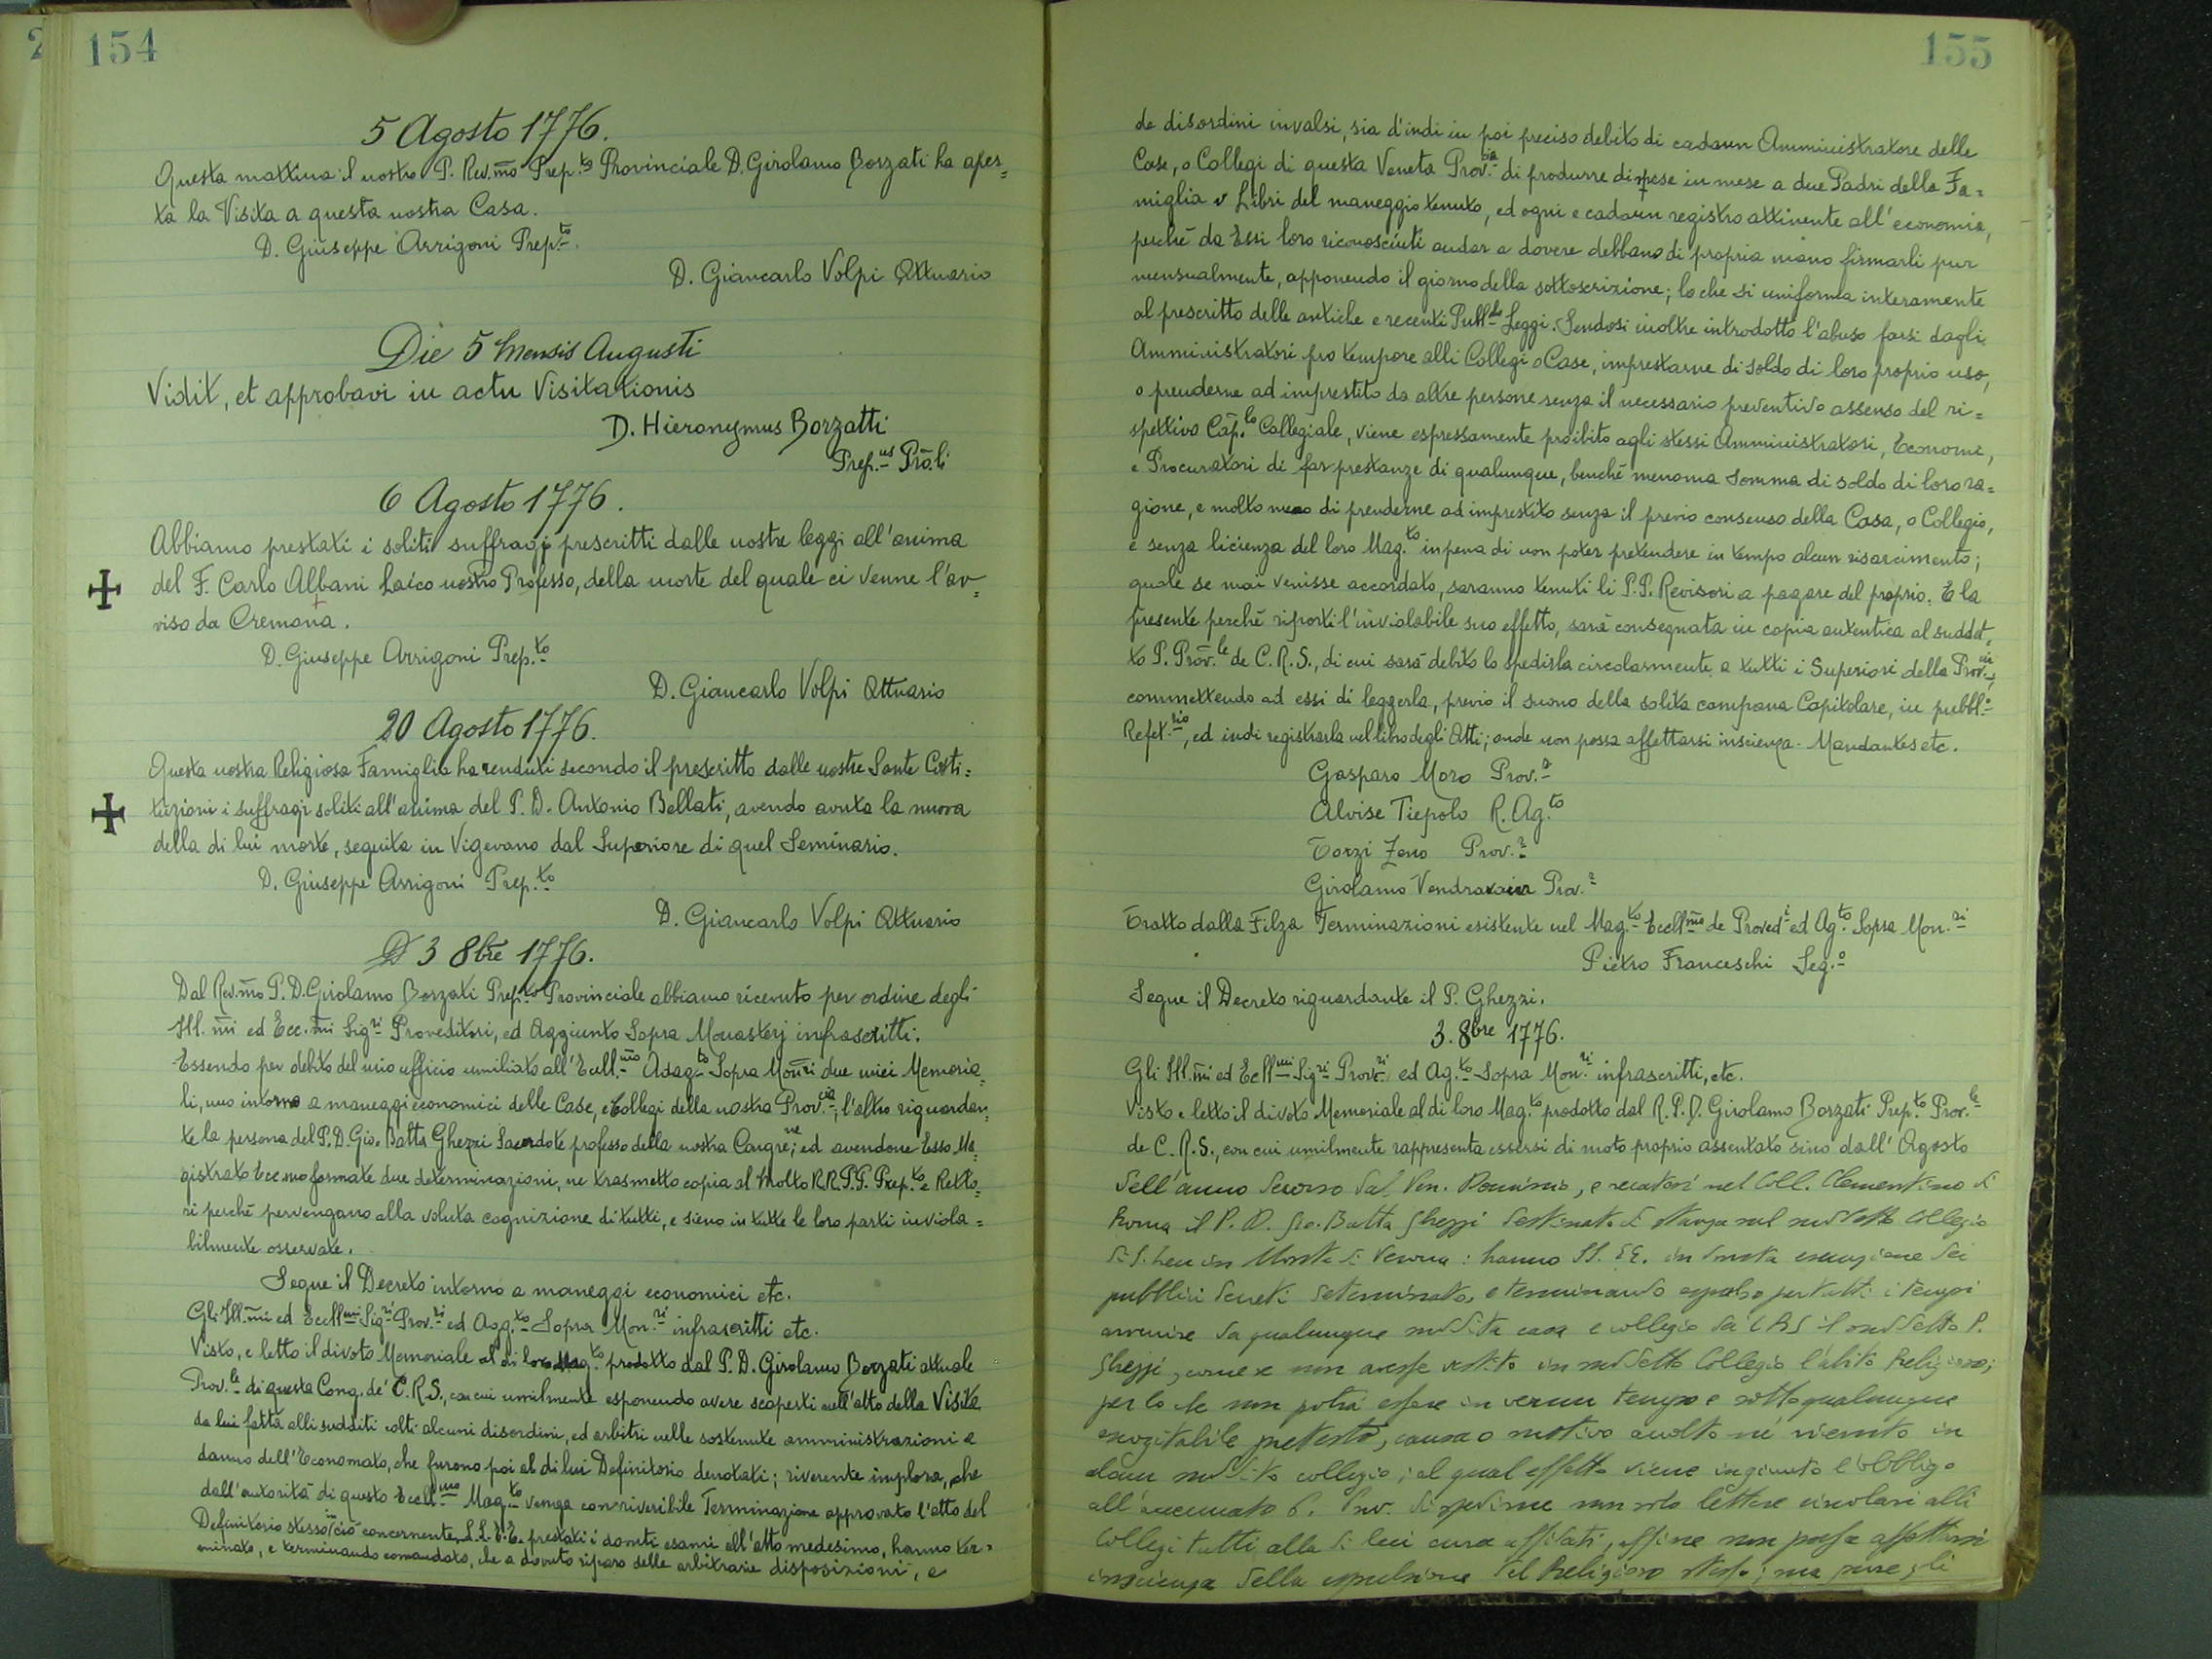 154
5 Agosto 1776.
Questa mattina il nostro P. Rev.mo Prep.to Provinciale D. Girolamo Borzati ha aper=
ta la Visita a questa nostra Casa.
D. Giuseppe Arrigoni Prep.to.
D. Giancarlo Volpi Attuario
Die 5 Mensis Augusti
Vidit, et approbavi in actu Visitationis
D. Hieronymus Borzatti
Prep.us Prõ.li
6 Agosto 1776.
Abbiamo prestati i soliti suffragi prescritti dalle nostre leggi all'anima
del F. Carlo Albani Laico nostro Professo, della morte del quale ci venne l'av=
viso da Cremona.
D. Giuseppe Arrigoni Prep.to
D. Giancarlo Volpi Attuario
20 Agosto 1776.
Questa nostra Religiosa Famiglia ha renduti secondo il prescritto dalle nostre Sante Costi=
tuzioni i suffragi soliti all'anima del P. D. Antonio Bellati, avendo avuta la nuova
della di lui morte, seguita in Vigevano dal Superiore di quel Seminario.
D. Giuseppe Arrigoni Prep.to
D. Giancarlo Volpi Attuario
D 3 8bre 1776.
Dal Rev.mo P. D. Girolamo Borzati Prep.to Provinciale abbiamo ricevuto per ordine degli
Ill.mi ed Ecc.mi Sig.ri Proveditori, ed Aggiunto Sopra Monasterj infrascritti.
Essendo per debito del mio ufficio umiliato all'Eccll.mo Adag.to Sopra Mon.ri due miei Memoria=
li, uno intorno a maneggi economici delle Case, e Collegi della nostra Prov.cia, l'altro riguardan=
te la persona del P. D. Gio. Batta Ghezzi Sacerdote professo della nostra Congre.ne; ed avendone Esso Ma=
gistrato Ecc.mo formate due determinazioni, ne trasmetto copia al Molto R.R. P.P. Prep.to e Retto=
ri perché pervengano alla voluta cognizione di tutti, e sieno in tutte le loro parti inviola=
bilmente osservate.
Segue il Decreto intorno a maneggi economici etc.
Gli Ill.mi ed Eccll.mi Sig.ri Prov.ri ed Agg.to Sopra Mon.ri infrascritti etc.
Visto, e letto il divoto Memoriale al di loro Mag.to prodotto dal P. D. Girolamo Borzati attuale
Prov.le di questa Cong. de' C.R.S., con cui umilmente esponendo avere scoperti nell'atto della Visita
da lui fatta alli sudditi colti alcuni disordini, ed arbitri nelle sostenute amministrazioni a
danno dell'Economato, che furono poi al di lui Definitorio denotati; riverente implora, che
dall'autorità di questo Eccll.mo Mag.to venga con riveribile Terminazione approvato l'atto del
Definitorio stesso ciò concernente, L.L. E.E. prestati i dovuti esami all'atto medesimo, hanno ter=
minato, e terminando comandato, che a dovuto riparo delle arbitrarie disposizioni, e
155
de disordini invalsi, sia d'indi in poi preciso debito di cadaun Amministratore delle
Case, o Collegi di questa Veneta Prov.cia di produrre di mese in mese a due Padri della Fa=
miglia v Libri del maneggio tenuto, ed ogni e cadaun registro attinente all'economia,
perché da Essi loro riconosciuti andar a dovere debbano di propria mano firmarli pur
mensualmente, apponendo il giorno della sottoscrizione; lo che si uniforma interamente
al prescritto delle antiche e recenti Publ.he Leggi. Sendosi inoltre introdotto l'abuso farsi dagli
Amministratori pro tempore alli Collegi o Case, imprestarne di soldo di loro proprio uso,
o prenderne ad imprestito da altre persone senza il necessario preventivo assenso del ri=
spettivo Cap.lo Collegiale, viene espressamente proibito agli stessi Amministratori, Economi,
e Procuratori di far prestanze di qualunque, benché menoma somma di soldo di loro ra=
gione, e molto meno di prenderne ad imprestito senza il previo consenso della Casa, o Collegio,
e senza licienza del loro Mag.to in pena di non poter pretendere in tempo alcun risarcimento;
quale se mai venisse accordato, saranno tenuti li P.P. Revisori a pagare del proprio. E la
presente perché riporti l'inviolabile suo effetto, sarà consegnata in copia autentica al suddet=
to P. Prov.le de C.R.S., di cui sarà debito lo spedirla circolarmente a tutti i Superiori della Prov.cia,
commettendo ad essi di leggerla, previo il suono della solita campana Capitolare, in pubbl.o
Refet.rio, ed indi registrarla nel libro degli Atti; onde non possa affettarsi inscienza. Mandantes etc.
Gasparo Moro Prov.r
Alvise Tiepolo R. Ag.to
Zorzi Zeno Prov.r
Girolamo Vendra Prov.r
Tratto dalla Filza Terminazioni esistente nel Mag.to Eccll.mo de Proved.i ed Ag.to Sopra Mon.ri
Pietro Franceschi Seg.o
Segue il Decreto riguardante il P. Ghezzi.
3. 8bre 1776.
Gli Ill.mi ed Ecll.mi Sig.ri Prov.ri ed Ag.to Sopra Mon.ri infrascritti, etc.
Visto e letto il divoto Memoriale al di loro Mag.to prodotto dal R. P. D. Girolamo Borzati Prep.to Prov.le
de C.R.S., con cui umilmente rappresenta essersi di moto proprio assentato sino dall'Agosto
dell'anno scorso dal Ven. Dominio, e recatosi nel Coll. Clementino di
Roma il P. D. Gio. Batta Ghezzi destinato di stanza nel suddetto Collegio
di S. Leu in Monte di Verona: hanno LL. EE. in dovuta esecuzione dei
pubblici Decreti determinato, e terminando espulso per tutti i tempi
avvenire da qualunque suddita casa e collegio dei CRS il suddetto P.
Ghezzi, come se non avesse vestito in suddetto Collegio l'abito Religioso;
per lo che non potrà essere in verun tempo e sotto qualunque
escogitabile pretesto, causa o motivo accolto né ricevuto in
alcun suddito collegio; al qual effetto viene ingiunto l'obbligo
all'accennato P. Prov. di spedirne non solo lettere circolari alli
Collegi tutti alla di lui cura affidati, affine non possa affettarsi
inscienza della espulsione del Religioso stesso; ma pure gli